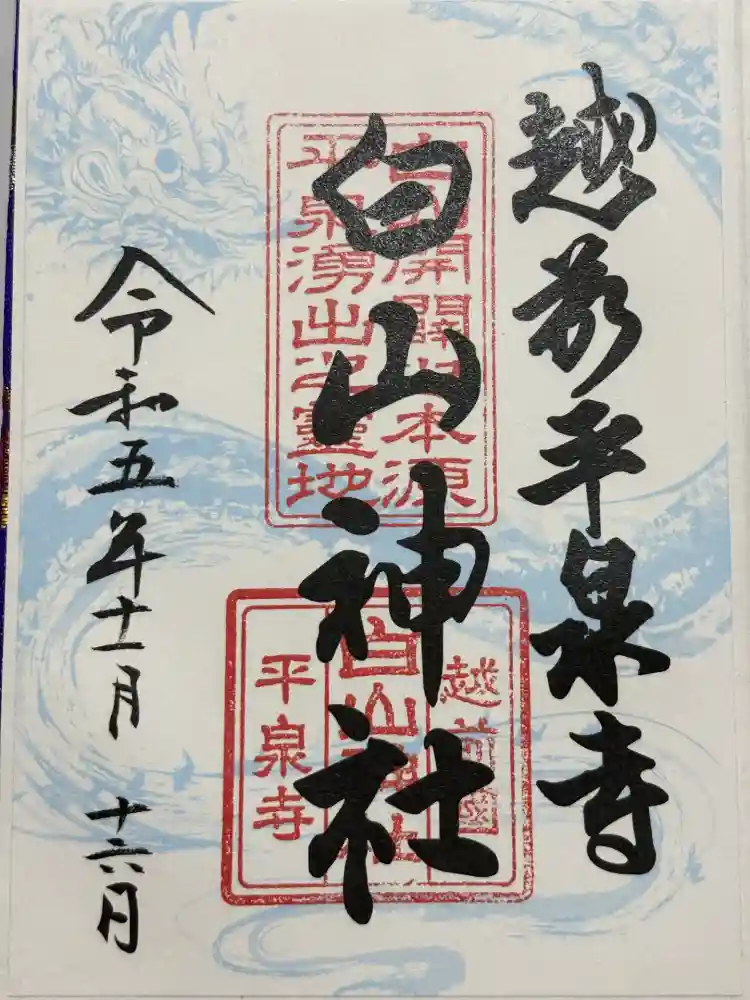 越前平泉寺
白山神社
令和五年十一月十六日
白山開闢之本源
平泉湧出之靈地
越前國
白山神社
平泉寺